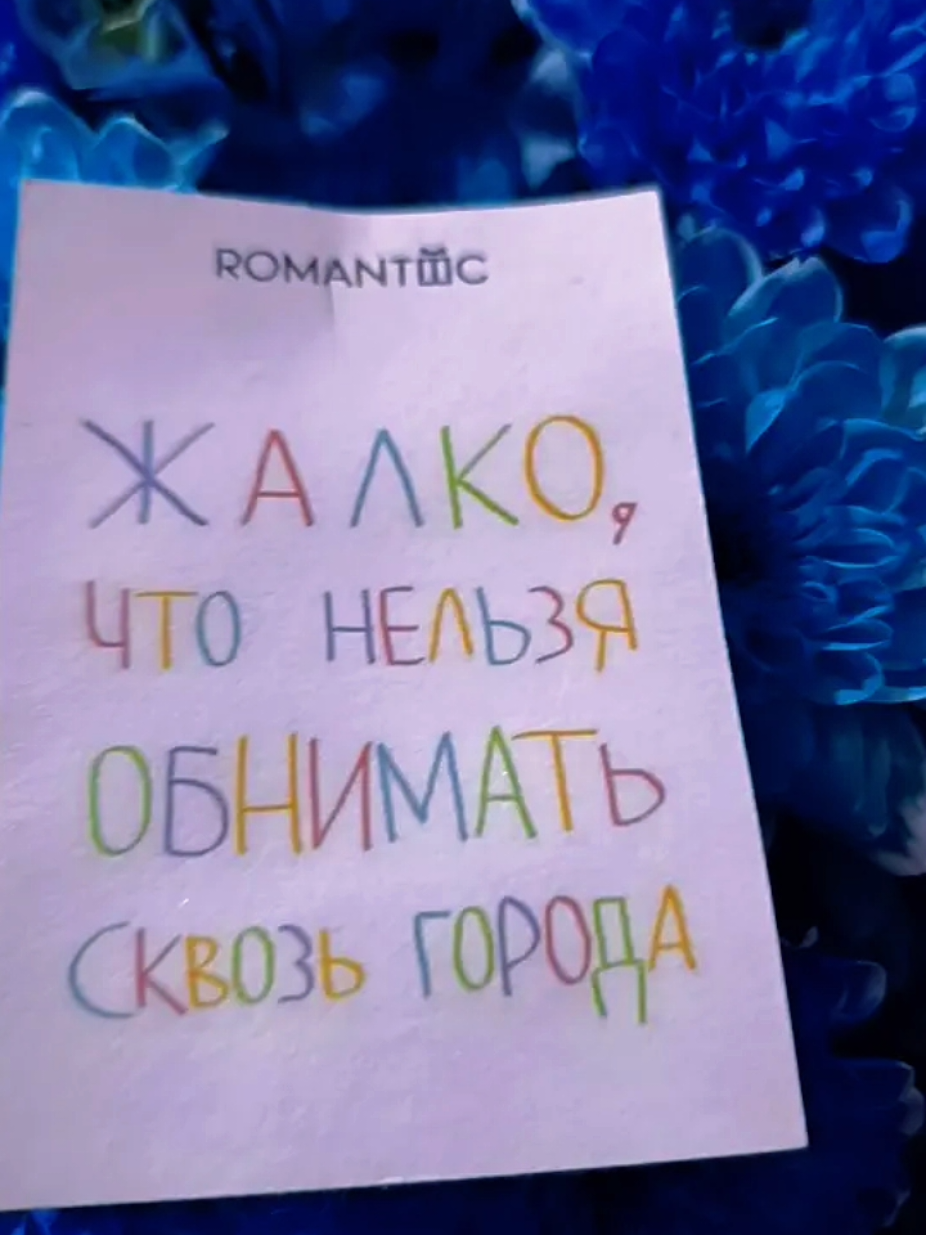 ROMANTIC
ЖАЛКО,
ЧТО НЕЛЬЗЯ
ОБНИМАТЬ
СКВОЗЬ ГОРОДА